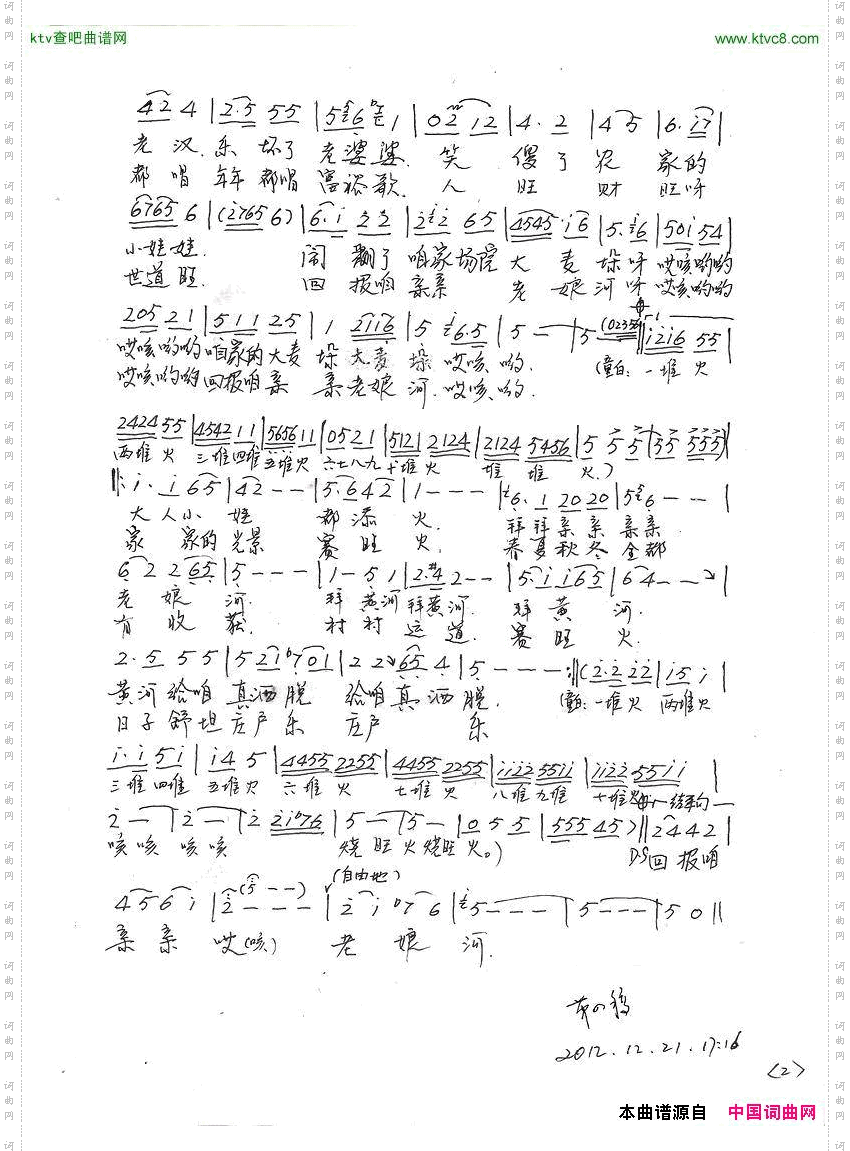 ktv查吧曲谱网 www.ktvc8.com
4 2 4 | 2·5 5 5 | 5 6 1 | 0 2 1 2 | 4· 2 | 4 5 | 6· i 7 |
老汉乐坏了老婆婆.笑傻了农家的
都唱年年都唱富裕歌.人旺财旺呀
6765 6 | (2765 6) | 6· i 2 2 | 2 2 6 5 | 4545 i 6 | 5· 6 | 50i 54 |
小娃娃.闹翻了咱家场院大麦垛呀哎咳哟哟
世道旺.回报咱亲亲老娘河呀哎咳哟哟
205 21 | 511 25 | 1 2116 | 5 i 6·5 | 5 — | 5 (0235 ‖ i2i6 55 |
哎咳哟哟咱家的大麦垛大麦垛哎咳哟.(童白:一堆火
哎咳哟哟回报咱亲亲老娘河.哎咳哟.
2424 55 | 4542 11 | 5656 11 | 0521 | 5121 2124 | 2124 5456 | 5 5 5 | 55 555) |
两堆火三堆四堆五堆火六七八九十堆火堆堆火.)
‖: i· i 6 5 | 4 2 - - | 5·6 4 2 | 1 - - - | 6· 1 20 20 | 5 6 - - |
大人小娃都添火.拜拜亲亲亲亲
家家的光景赛旺火.春夏秋冬全都
6 2 2 65 | 5 - - - | 1 - 5 1 | 2·4 2 - - | 5· i i 6 5 | 6 4 - - |
老娘河.拜黄河拜黄河.拜黄河.
有收获.村村运道.赛旺火.
2· 5 5 5 | 5 21 701 | 2 2 65 4 | 5 - - - :‖ (2·2 22 | i 5 i |
黄河给咱真洒脱给咱真洒脱.(童白:一堆火两堆火
日子舒坦庄户乐庄户乐
i· i 5 i | i 4 5 | 4455 2255 | 4455 2255 | ii22 55ii | ii22 55ii |
三堆四堆五堆火六堆火七堆火八堆九堆十堆火 结束句
2 — | 2 — | 2 2i76 | 5 — | 5 — | 0 5 5 | 555 45) ‖ 2 4 4 2 |
咳咳咳咳烧旺火烧旺火。) D.S 回报咱
(自由地)
4 5 6 i | 2 - - - (5 - -) | 2 i 7 6 | 5 - - - | 5 - - - | 5 0 ‖
亲亲哎(咳)老娘河.
2012.12.21.17:16
<2>
本曲谱源自 中国词曲网
词曲网